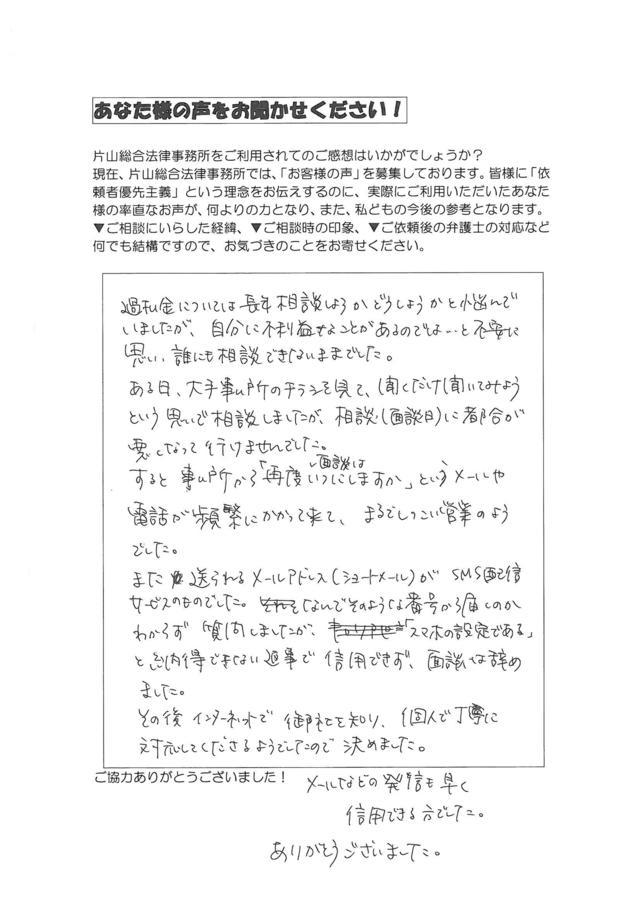 あなた様の声をお聞かせください！
片山総合法律事務所をご利用されてのご感想はいかがでしょうか？
現在、片山総合法律事務所では、「お客様の声」を募集しております。皆様に「依
頼者優先主義」という理念をお伝えするのに、実際にご利用いただいたあなた
様の率直なお声が、何よりの力となり、また、私どもの今後の参考となります。
▼ご相談にいらした経緯、▼ご相談時の印象、▼ご依頼後の弁護士の対応など
何でも結構ですので、お気づきのことをお寄せください。
過払金については長年相談しようかどうしようかと悩んで
いましたが、自分に不利益なことがあるのでは…と不安に
思い、誰にも相談できないままでした。
ある日、大手事ム所のチラシを見て、聞くだけ聞いてみよう
という思いで相談しましたが、相談（面談日）に都合が
悪くなって行けませんでした。
すると事ム所から「再度面談はいつにしますか」というメールや
電話が頻繁にかかって来て、まるでしつこい営業のよう
でした。
また送られるメールアドレス（ショートメール）がSMS配信
サービスのものでした。なんでそのような番号から届くのか
わからず質問しましたが、「スマホの設定である」
と納得できない返事で信用できず、面談は辞め
ました。
その後インターネットで御社を知り、個人で丁寧に
対応してくださるようでしたので決めました。
ご協力ありがとうございました！
メールなどの発信も早く
信用できる方でした。
ありがとうございました。